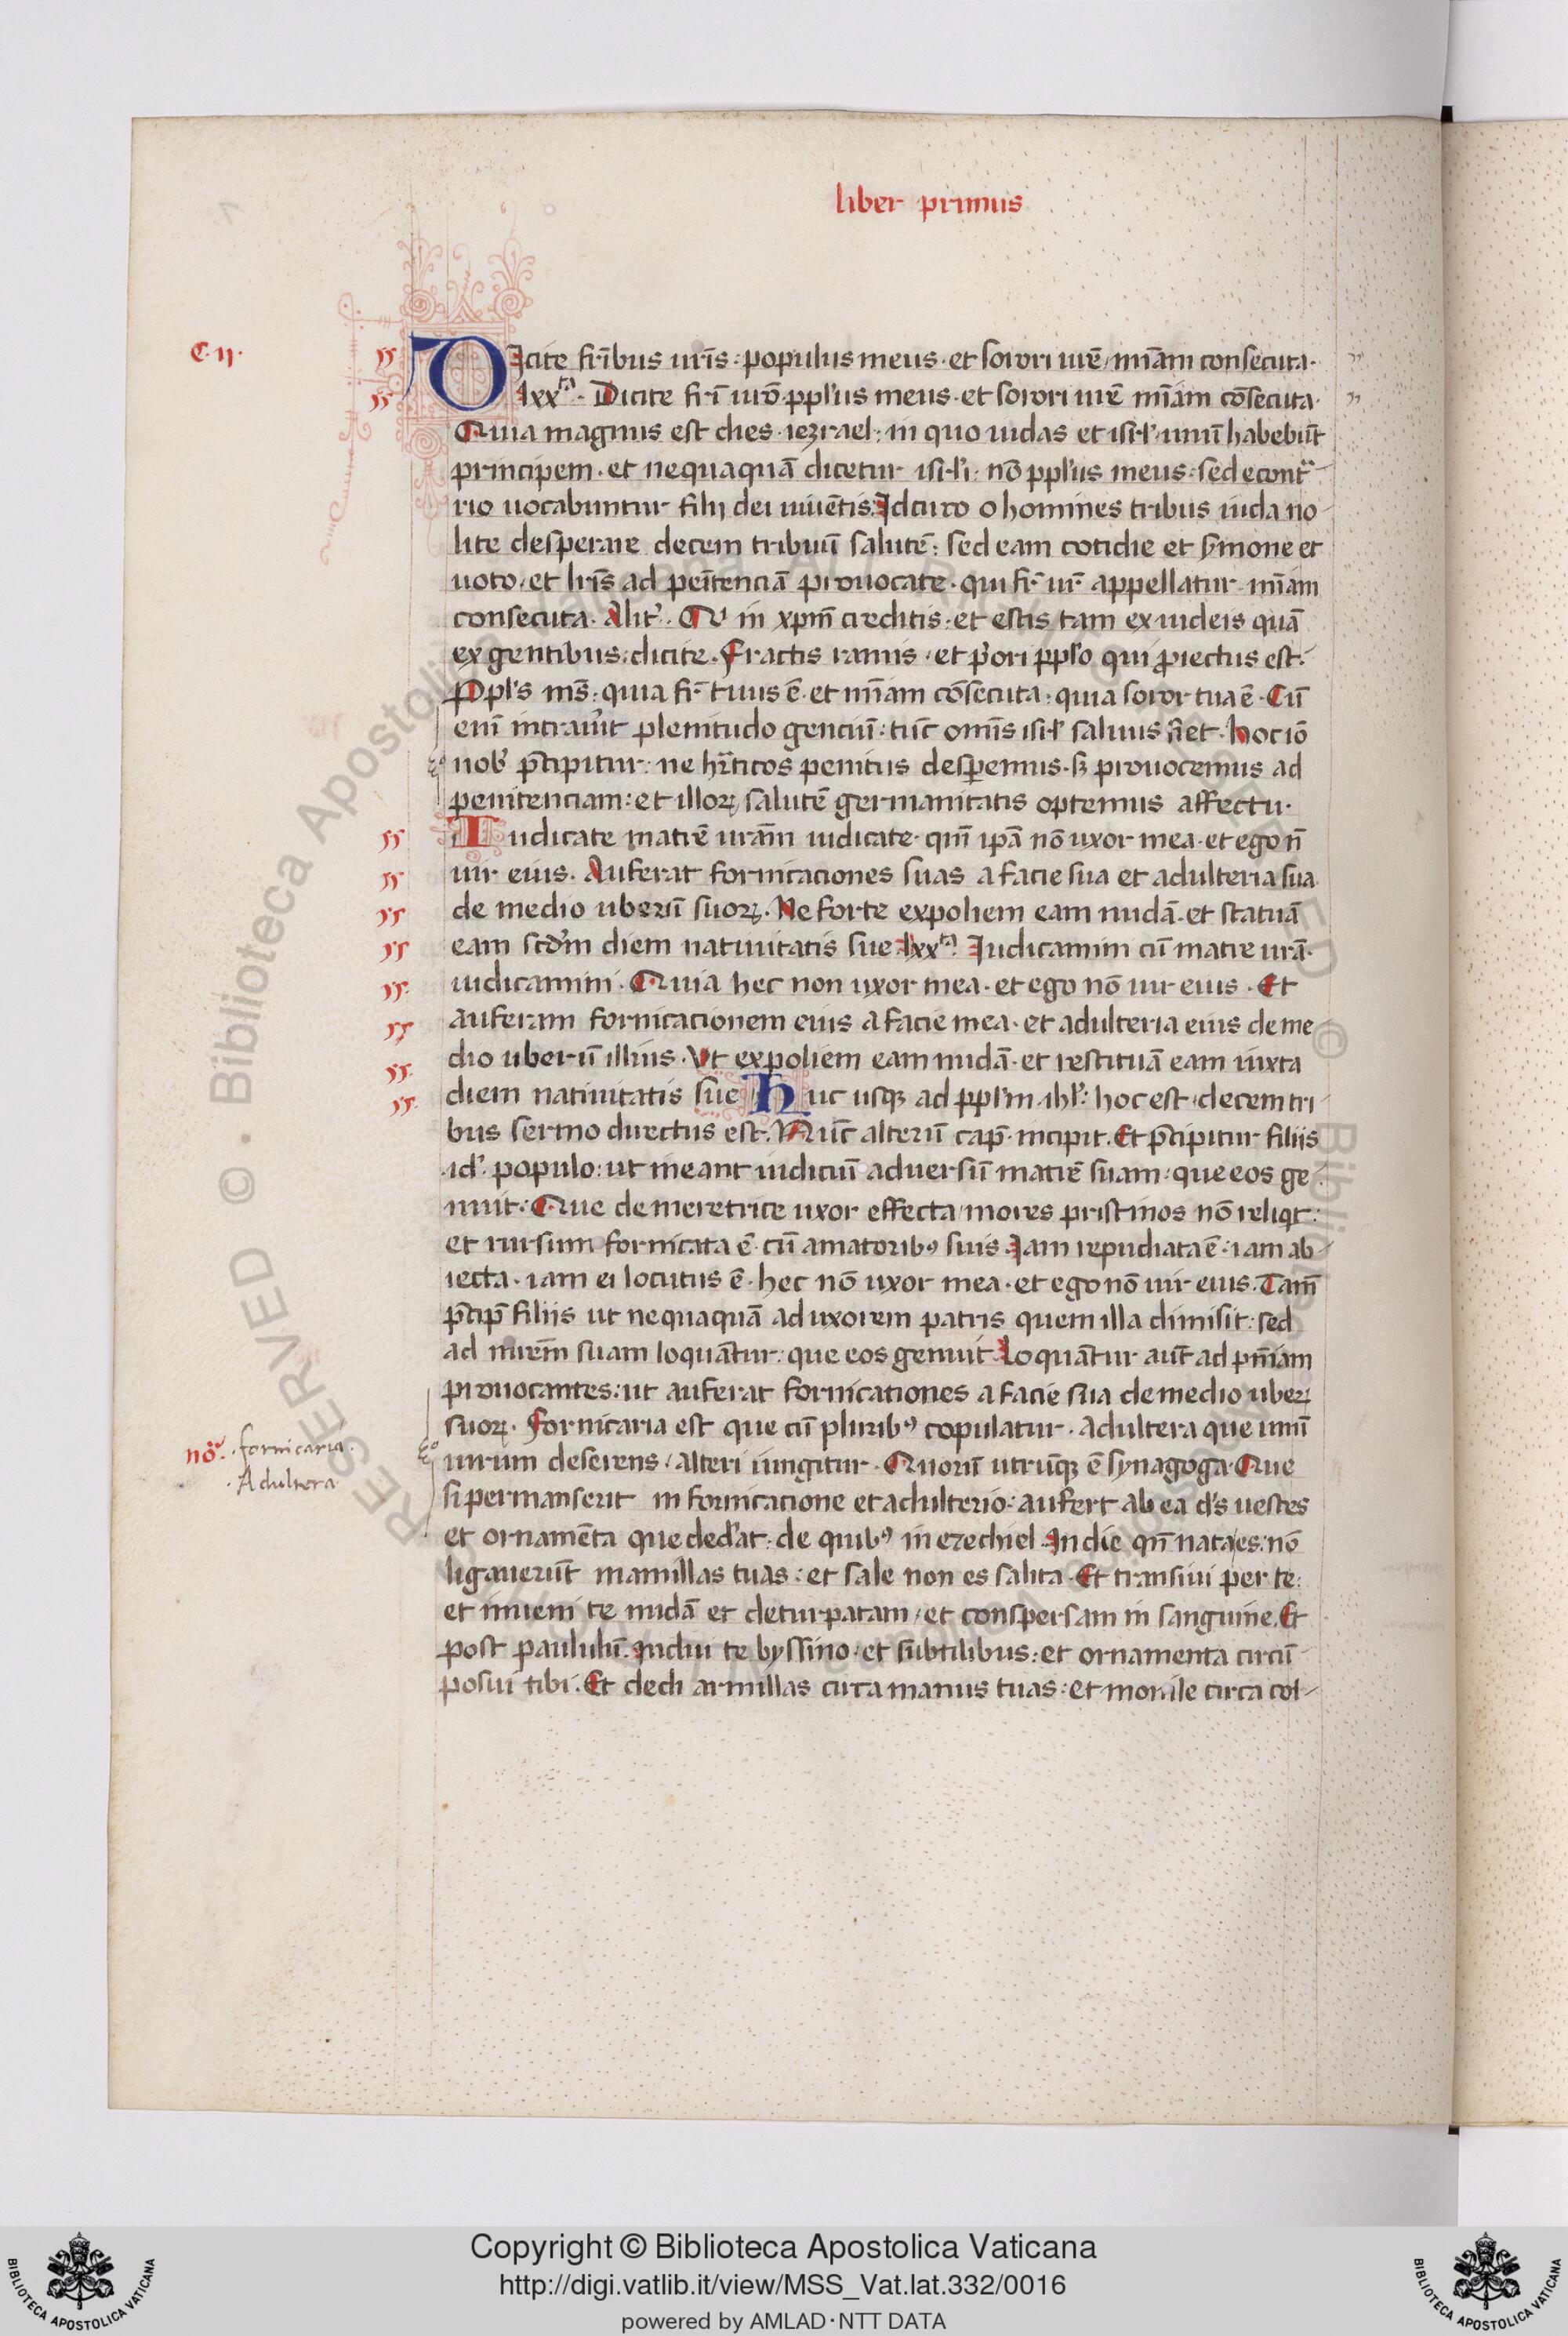 liber primus
C·ij·
DIcite fr̄ibus ur̄is: populus meus· et sorori ur̄e, mīam consecuta·
lxxͭᵃ· Dicite fr̄i ur̄o ppl'us meus· et sorori ur̄e mīam cōsecuta·
Quia magnus est dies iezrael: in quo iudas et isr̄l' unū habebūt
principem· et nequaquā dicetur isr̄l'i: nō ppl'us meus: sed econtᵃ
rio uocabuntur filij dei uiuētis: Idcirco o homines tribus iuda no
lite desperare decem tribuū salutē: sed eam cotidie et s̄mone et
uoto, et lr̄is ad penītenciā prouocate· qui fr̄ ur̄ appellatur· mīam
consecuta· Alit'· Qͥ in xpm̄ creditis: et estis tam ex iudeis quā
ex gentibus: dicite· Fractis ramis, et p'ori pplo qui ꝓiectus est:
Ppl's ms̄: quia fr̄ tuus ē· et mīam cōsecuta· quia soror tua ē· Cū
enī intrau'it plenitudo genciū: tūc omīs isr̄l' saluus fiet· hoc iō
nob' p̄cipitur: ne hr̄ticos penitus desꝑemus· sꝫ prouocemus ad
penitenciam: et illoꝝ salutē germanitatis optemus affectu·
Iudicate matrē urām iudicate· qm̄ ip̄a nō uxor mea· et ego n̄
uir eius· Auferat fornicaciones suas a facie sua et adulteria sua
de medio uberū suoꝝ· Ne forte expoliem eam nudā· et statuā
eam scd̄m diem natiuitatis sue lxxͭᵃ· Iudicamini cū matre urā·
iudicamini· Quia hec non uxor mea· et ego nō uir eius· Et
auferam fornicacionem eius a facie mea· et adulteria eius de me
dio uberū illius· Vt expoliem eam nudā· et restituā eam iuxta
diem natiuitatis sue Huc usqꝫ ad ppl'm ihl': hoc est decem tri
bus sermo directus est· Nūc alterū cap̄ incipit· Et p̄cipitur filiis
·id'· populo: ut ineant iudiciū aduersū matrē suam: que eos ge
nuit: Que de meretrice uxor effecta, mores pristinos nō reliqͥt:
et rursum fornicata ē· cū amatoribꝰ suis· Iam repudiata ē: iam ab
iecta· iam ei locutus ē· hec nō uxor mea· et ego nō uir eius· Tam̄
p̄cip̄ filiis ut nequaquā ad uxorem patris quem illa dimisit: sed
ad mr̄em suam loquātur: que eos genuit· Loquātur aūt ad pn̄iam
prouocantes: ut auferat fornicationes a facie sua de medio uberꝝ
suoꝝ· Fornicaria est que cū pluribꝰ copulatur· Adultera que unū
uirum deserens, alteri iungitur· Quorū utrūqꝫ ē synagoga· Que
si permanserit in fornicacione et adulterio: aufert ab ea d's uestes
et ornamēta que ded'at: de quibꝰ in ezechiel· In die qn̄ nata es: nō
ligauerūt mamillas tuas: et sale non es salita· Et transiui per te:
et inueni te nudā et deturpatam, et conspersam in sanguine· Et
post paululū· Indui te byssino: et subtilibus: et ornamenta circū
posui tibi· Et dedi armillas circa manus tuas: et monile circa col
nōᵃ· ·fornicaria·
·Adultera
RESERVED © · Biblioteca Apostolica Vaticana
Copyright © Biblioteca Apostolica Vaticana
http://digi.vatlib.it/view/MSS_Vat.lat.332/0016
powered by AMLAD·NTT DATA
BIBLIOTECA APOSTOLICA VATICANA
BIBLIOTECA APOSTOLICA VATICANA